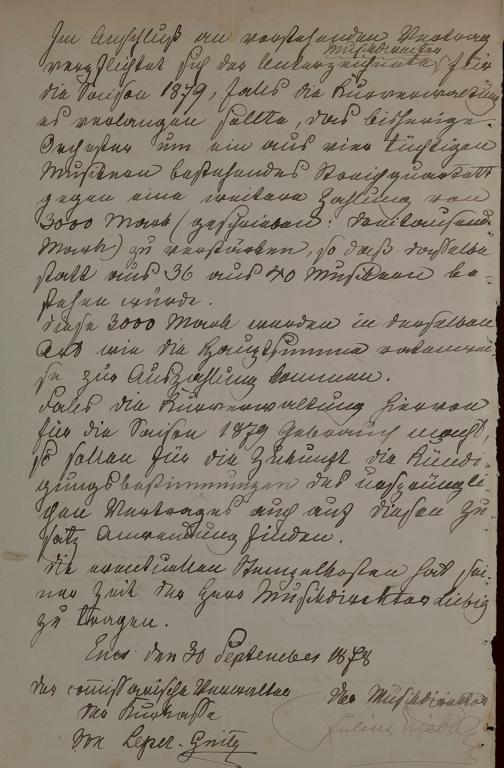 Im Anschluß an vorstehenden Vertrag
verpflichtet sich der Unterzeichnete Musikdirector für
die Saison 1879, falls die Kurverwaltung
es verlangen sollte, das bisherige
Orchester um ein aus vier tüchtigen
Musikern bestehendes Streichquartett
gegen eine weitere Zahlung von
3000 Mark (geschrieben: dreitausend
Mark) zu verstärken, so daß dasselbe
statt aus 36 aus 40 Musikern be-
stehen würde.
Diese 3000 Mark werden in derselben
Art wie die Hauptsumme ratenwei-
se zur Auszahlung kommen.
Falls die Kurverwaltung hiervon
für die Saison 1879 Gebrauch macht,
so sollen für die Zukunft die Kündi-
gungsbestimmungen des ursprüngli-
chen Vertrages auch auf diesen Zu-
satz Anwendung finden.
Die eventuellen Stempelkosten hat, sei-
ner Zeit der Herr Musikdirektor Liebig
zu tragen.
Ems den 30 September 1878
Der commissarische Verwalter
der Kurkasse
von Leper-Gnitz
Der Musikdirektor
Julius Liebig